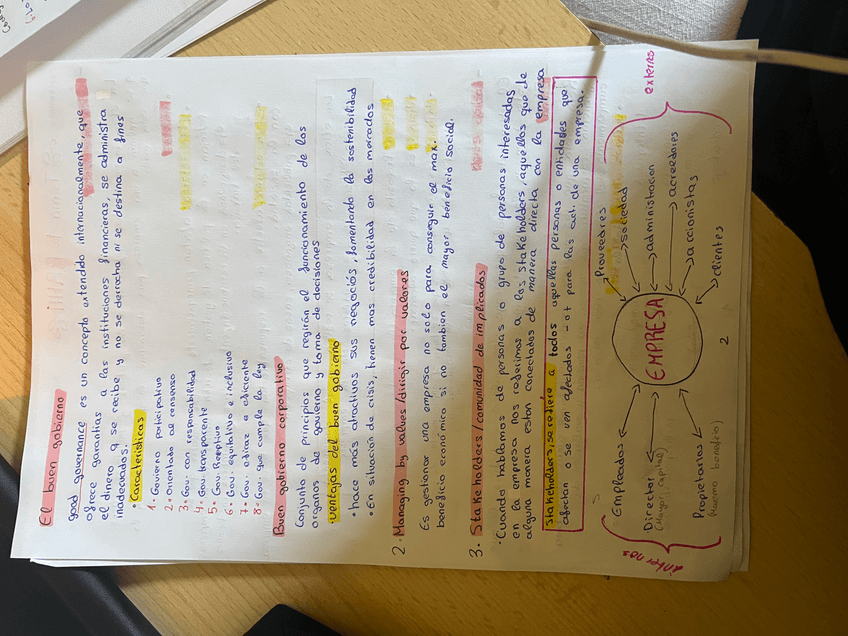 El buen gobierno
good governance es un concepto extendido internacionalmente, que
ofrece garantías a las instituciones financieras, se administra
el dinero q se recibe y no se derrocha ni se destina a fines
inadecuados.
• Características
1. Govierno participativo
2. orientado al consenso
3. Gov. con responsabilidad
4. Gov. transparente
5. Gov. Receptivo
6. Gov. equitativo e inclusivo
7. Gov. eficaz e eficiente
8. Gov. que cumple la ley
Buen gobierno corporativo
Conjunto de principios que regirán el funcionamiento de los
organos de govierno y toma de decisiones
ventajas del buen gobierno
• hace más atractivos sus negocios, fomentando la sostenibilidad
• En situación de crisis, tienen mas credibilidad en los mercados
2. Managing by values/dirigir por valores
Es gestionar una empresa no solo para conseguir el max.
beneficio económico si no tambien el mayor beneficio social.
3. Stakeholders/comunidad de implicados
• Cuando hablamos de personas o grupo de personas interesadas
en la empresa nos referimos a los stakeholders, aquellos que de
alguna manera estan conectados de manera directa con la empresa
stakeholders, se refiere a todos aquellas personas o entidades que
afectan o se ven afectados -ot para las act. de una empresa.
Empleados
Director
(Mayor capital)
Propietarios
(Maximo beneficio)
internos
EMPRESA
Proveedores
sociedad
administracion
acreedores
accionistas
clientes
externos
2